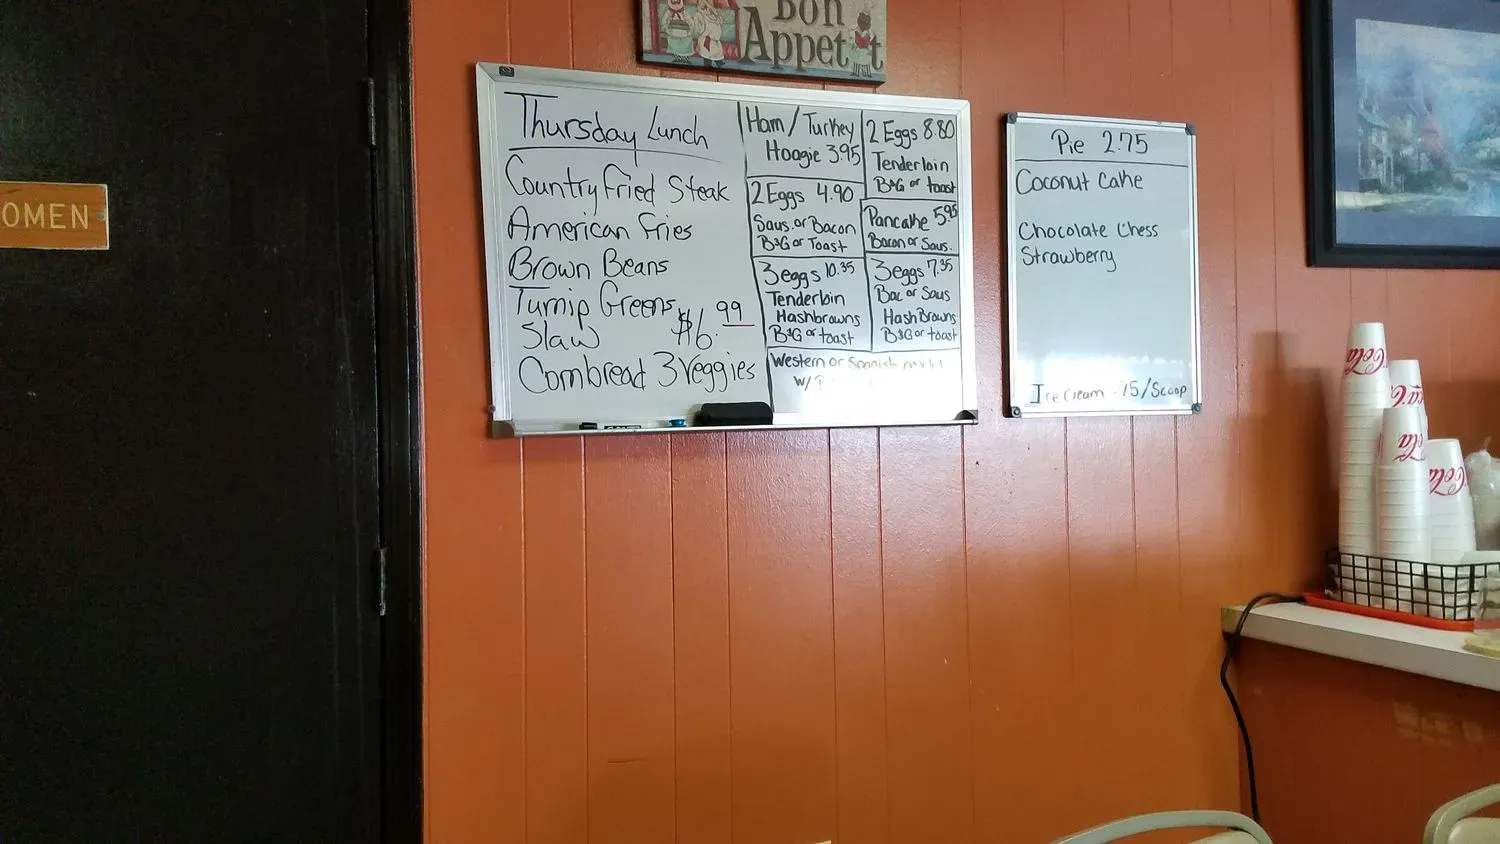 Bon
Appetit
OMEN
Thursday Lunch
Country Fried Steak
American Fries
Brown Beans
Turnip Greens
Slaw $6.99
Cornbread 3 Veggies
Ham/Turkey
Hoagie 3.95
2 Eggs 4.90
Saus. or Bacon
B&G or Toast
3 eggs 10.35
Tenderloin
Hashbrowns
B&G or toast
2 Eggs 8.80
Tenderloin
B&G or toast
Pancake 5.95
Bacon or Saus.
3 eggs 7.35
Bac or Saus
HashBrowns
B&G or toast
Western or Spanish
w/
Pie 2.75
Coconut Cake
Chocolate Chess
Strawberry
Ice Cream .75/Scoop
Cola
ca C
ola
Cola